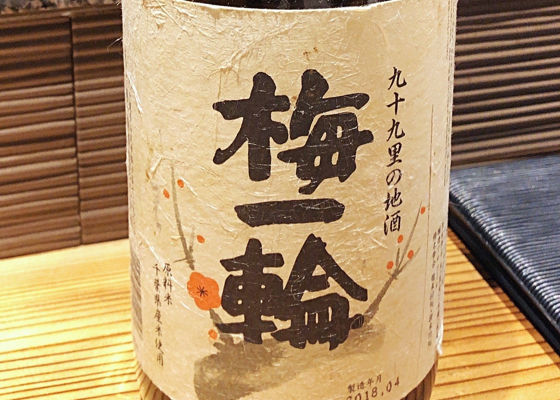 九十九里の地酒
梅一輪
原料米
千葉県産米使用
製造年月
2018.04